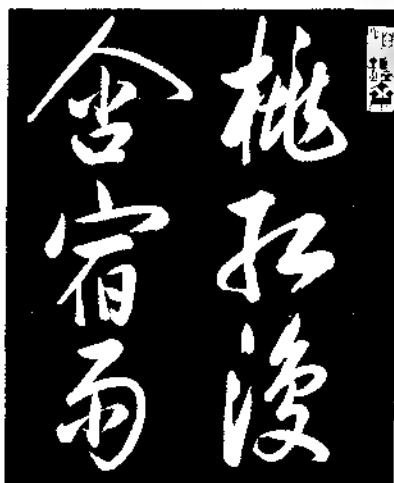 桃紅復
含宿雨